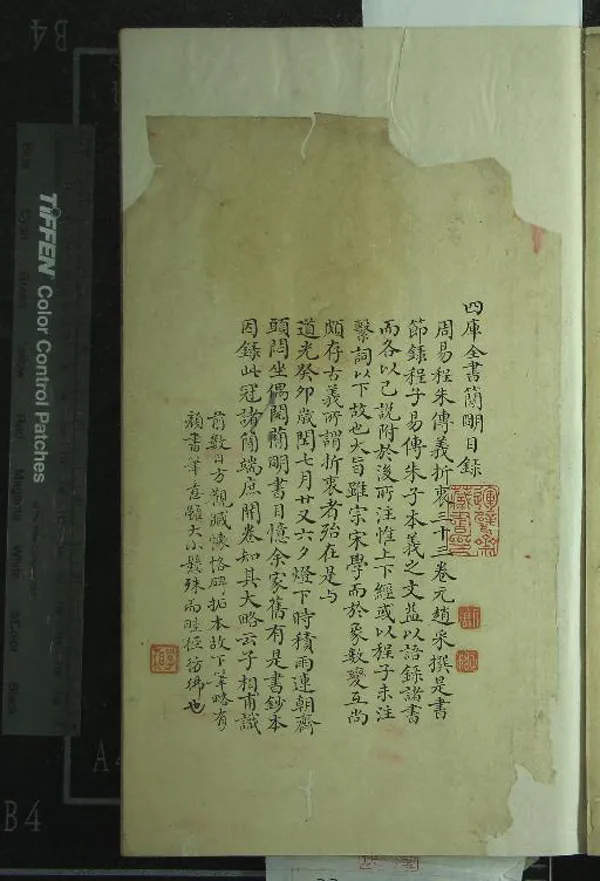 四庫全書簡明目錄
周易程朱傳義折衷三十三卷元趙采撰是書
節錄程子易傳朱子本義之文益以語錄諸書
而各以己説附於後所注惟上下經或以程子未注
繫詞以下故也大旨雖宗宋學而於象數變互尚
頗存古義所謂折衷者殆在是与
道光癸卯歲閏七月廿又六夕燈下時積雨連朝齋
頭悶坐偶閱簡明書目憶余家舊有是書鈔本
因錄此冠諸簡端庶開卷知其大略云子相甫識
前數日方觀臧懷恪碑拓本故下筆略有
顏書筆意雖大小懸殊而畦徑彷彿也
TIFFEN Color Control Patches
B4
B4